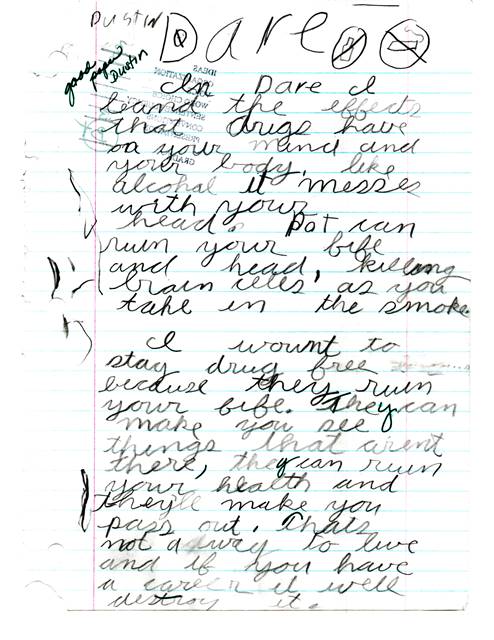 DUSTIN
Dare
good
paper
Dustin
In Dare I
learnd the effects
that drugs have
on your mind and
your body, like
alcohol it messes
with your
head. Pot can
ruin your life
and head, killing
brain cells, as you
take in the smoke.
I wount to
stay drug free
because they ruin
your life. They can
make you see
things that arent
there, they can ruin
your health and
they'll make you
pass out. Thats
not a way to live
and if you have
a career it well
destroy it.